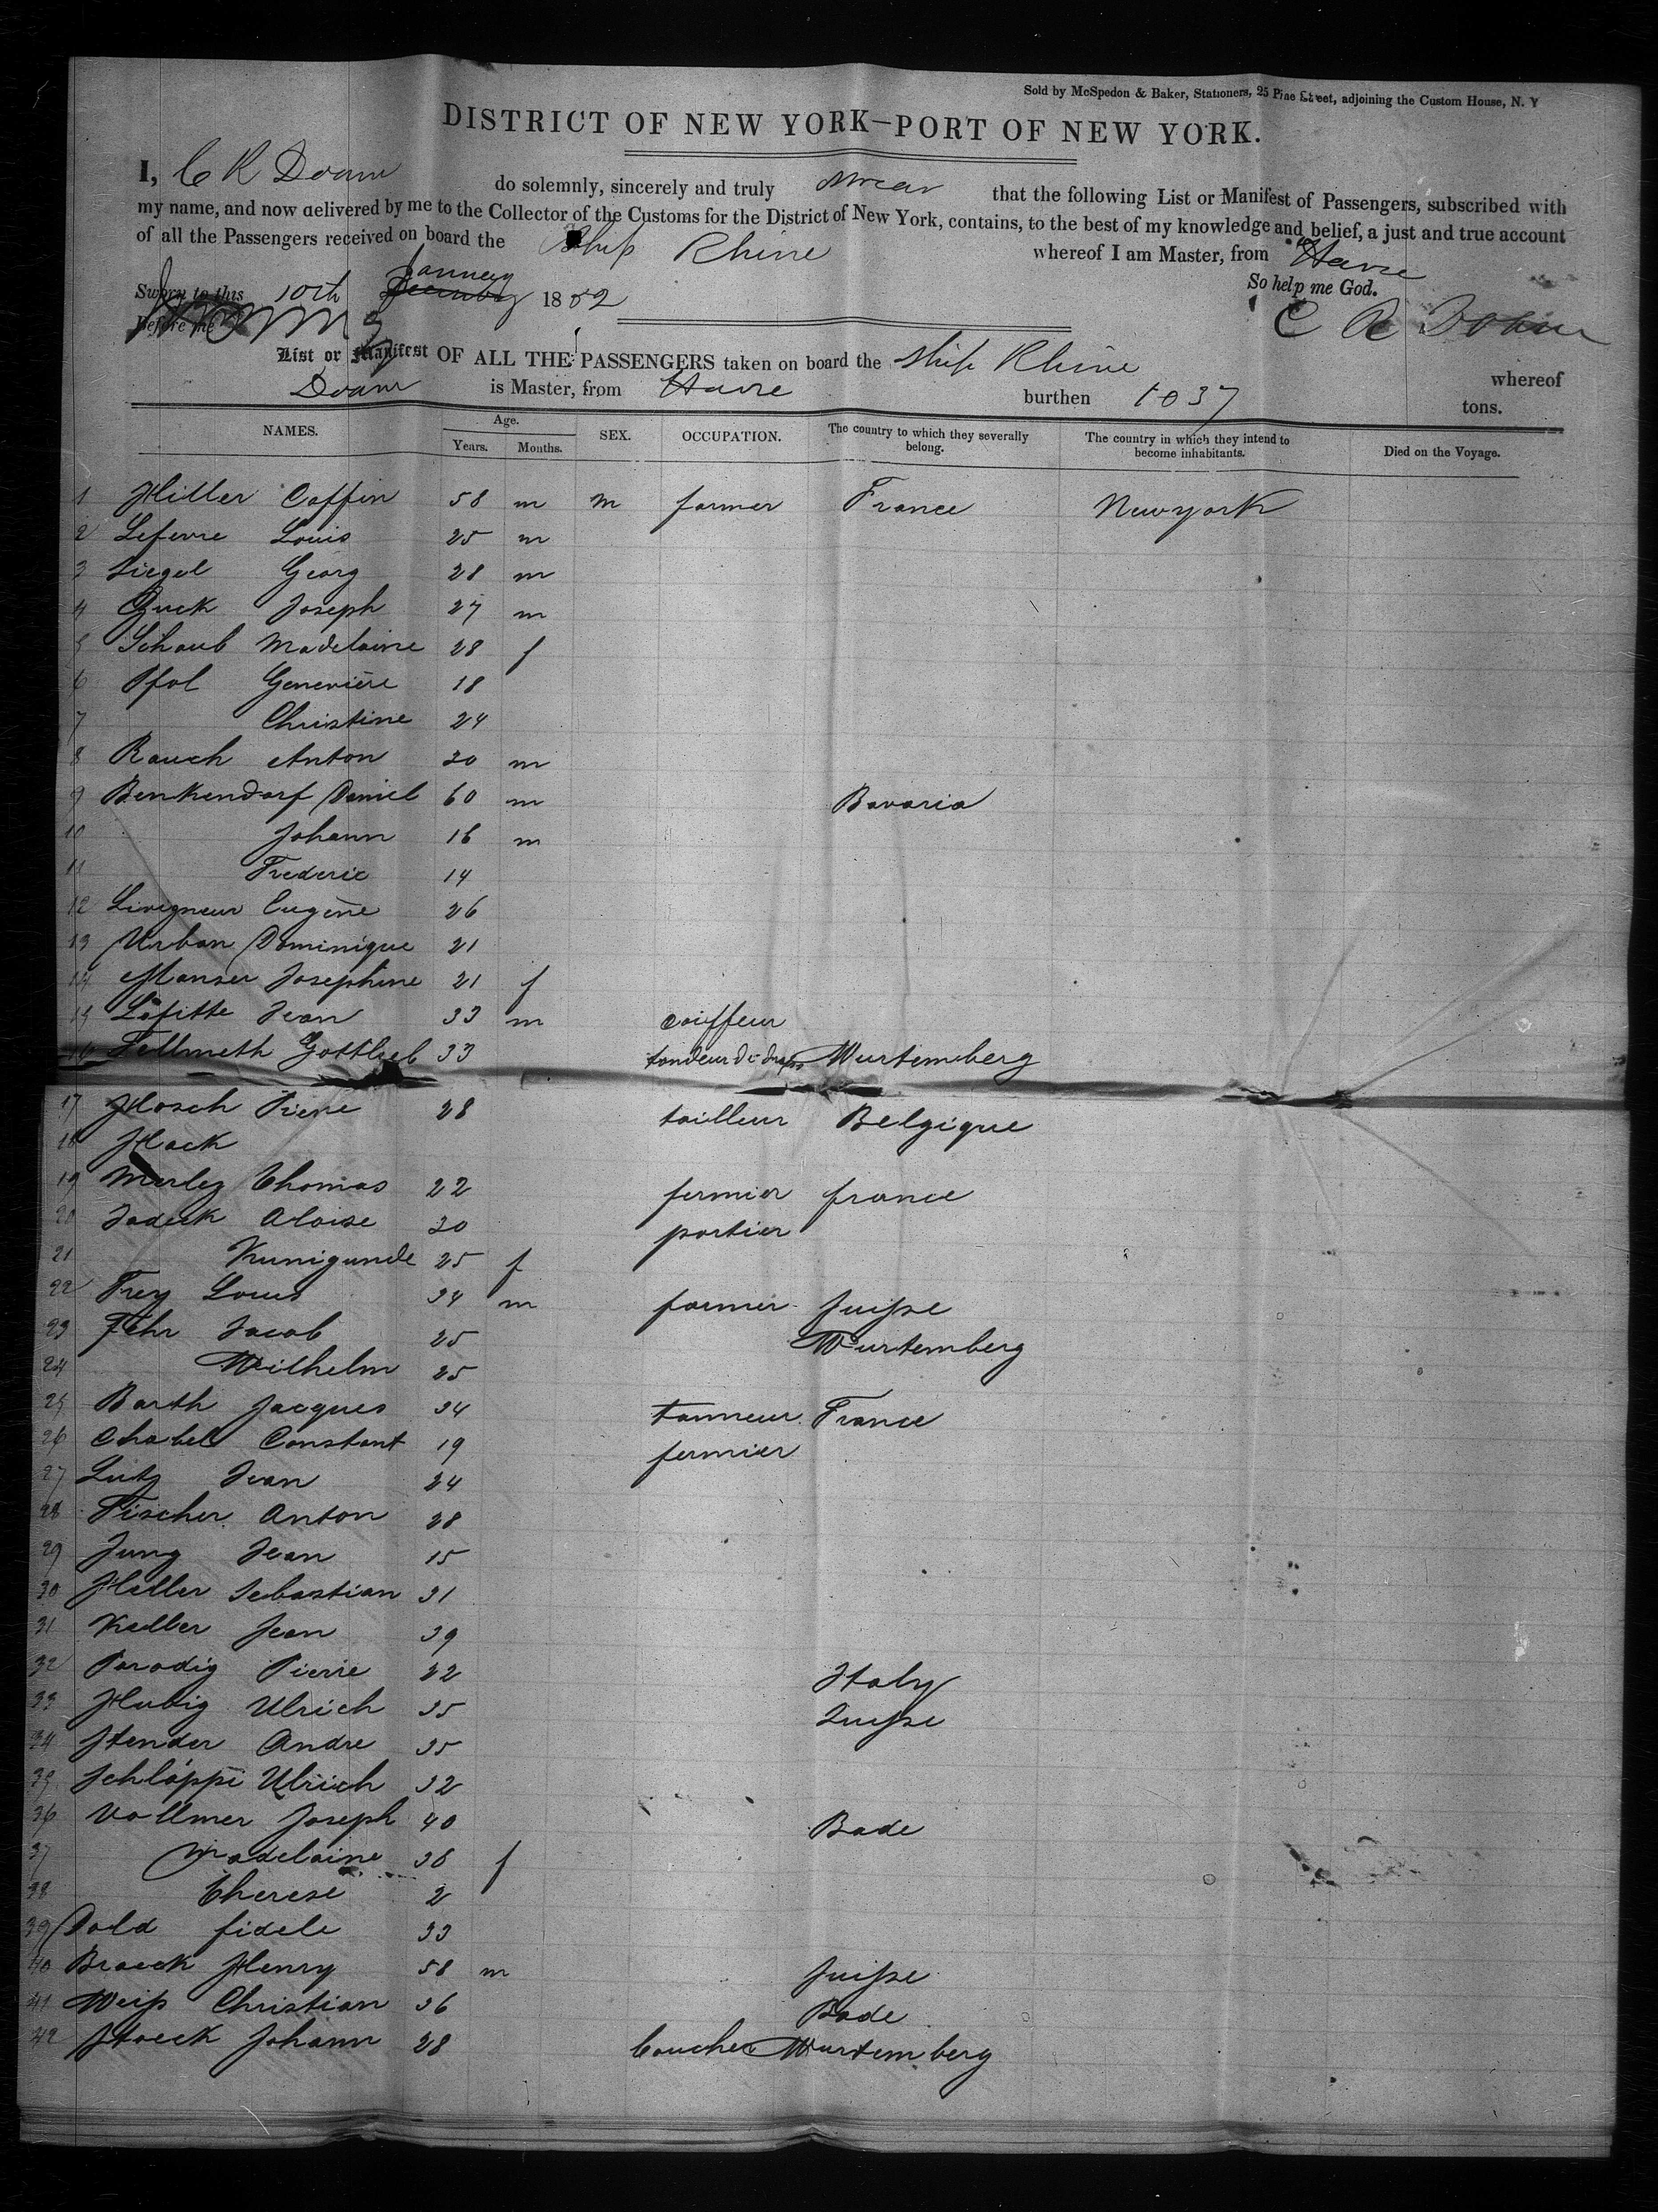 Sold by McSpedon & Baker, Stationers, 25 Pine Street, adjoining the Custom House, N. Y
DISTRICT OF NEW YORK—PORT OF NEW YORK.
I, C R Doane do solemnly, sincerely and truly swear that the following List or Manifest of Passengers, subscribed with
my name, and now delivered by me to the Collector of the Customs for the District of New York, contains, to the best of my knowledge and belief, a just and true account
of all the Passengers received on board the Ship Rhine whereof I am Master, from Havre
Sworn to this 10th January 1852 So help me God.
Before me C R Doane
List or Manifest OF ALL THE PASSENGERS taken on board the Ship Rhine whereof
Doane is Master, from Havre burthen 1037 tons.
NAMES. Age. Years. Months. SEX. OCCUPATION. The country to which they severally belong. The country in which they intend to become inhabitants. Died on the Voyage.
1 Hiller Caffin 58 m m farmer France Newyork
2 Lefevre Louis 25 m
3 Siegel Georg 28 m
4 Guck Joseph 27 m
5 Schaub Madelaine 28 f
6 Pfol Genevière 18
7 Christine 24
8 Rauch Anton 30 m
9 Benkendorf Daniel 60 m Bavaria
10 Johann 16 m
11 Frederic 14
12 Livegneur Eugène 26
13 Urban Dominique 21
14 Manser Josephine 21 f
15 Lafitte Jean 33 m coiffeur
16 Fellmeth Gottlieb 33 tondeur de draps Wurtemberg
17 Hosch Pierre 28 tailleur Belgique
18 Hack
19 Merley Thomas 22 fermier france
20 Jadeck Aloise 30 portier
21 Kunigunde 25 f
22 Frey Louis 34 m farmer Suisse
23 Fehr Jacob 25 Wurtemberg
24 Wilhelm 25
25 Barth Jacques 34 tanneur France
26 Chabel Constant 19 fermier
27 Lutz Jean 24
28 Fischer Anton 28
29 Jung Jean 15
30 Heller Sebastian 31
31 Keller Jean 39
32 Parodig Pierre 22 Italy
33 Hubig Ulrich 35 Suisse
34 Stender Andre 35
35 Schläppi Ulrich 32
36 Vollmer Joseph 40 Bade
37 Madelaine 38 f
38 Therese 2
39 Dold fidele 33
40 Braeck Henry 58 m Suisse
41 Weiss Christian 36 Bade
42 Stoeck Johann 28 boucher Wurtemberg